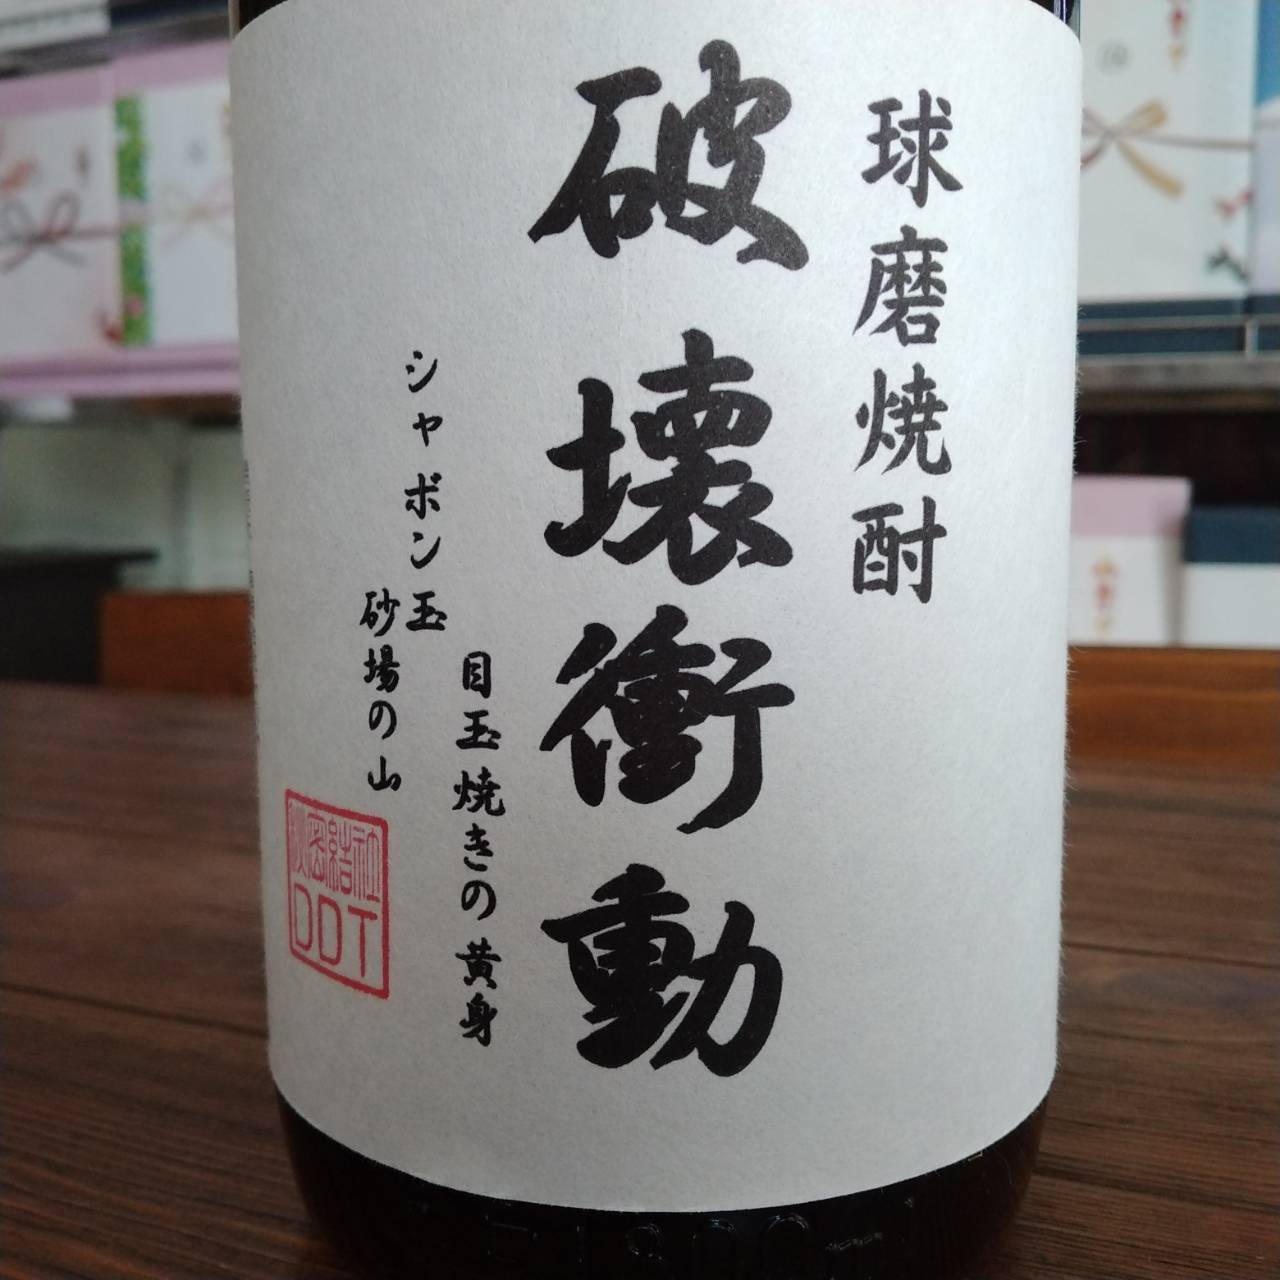 球磨焼酎
破壊衝動
目玉焼きの黄身
シャボン玉
砂場の山
秘密結社
DDT